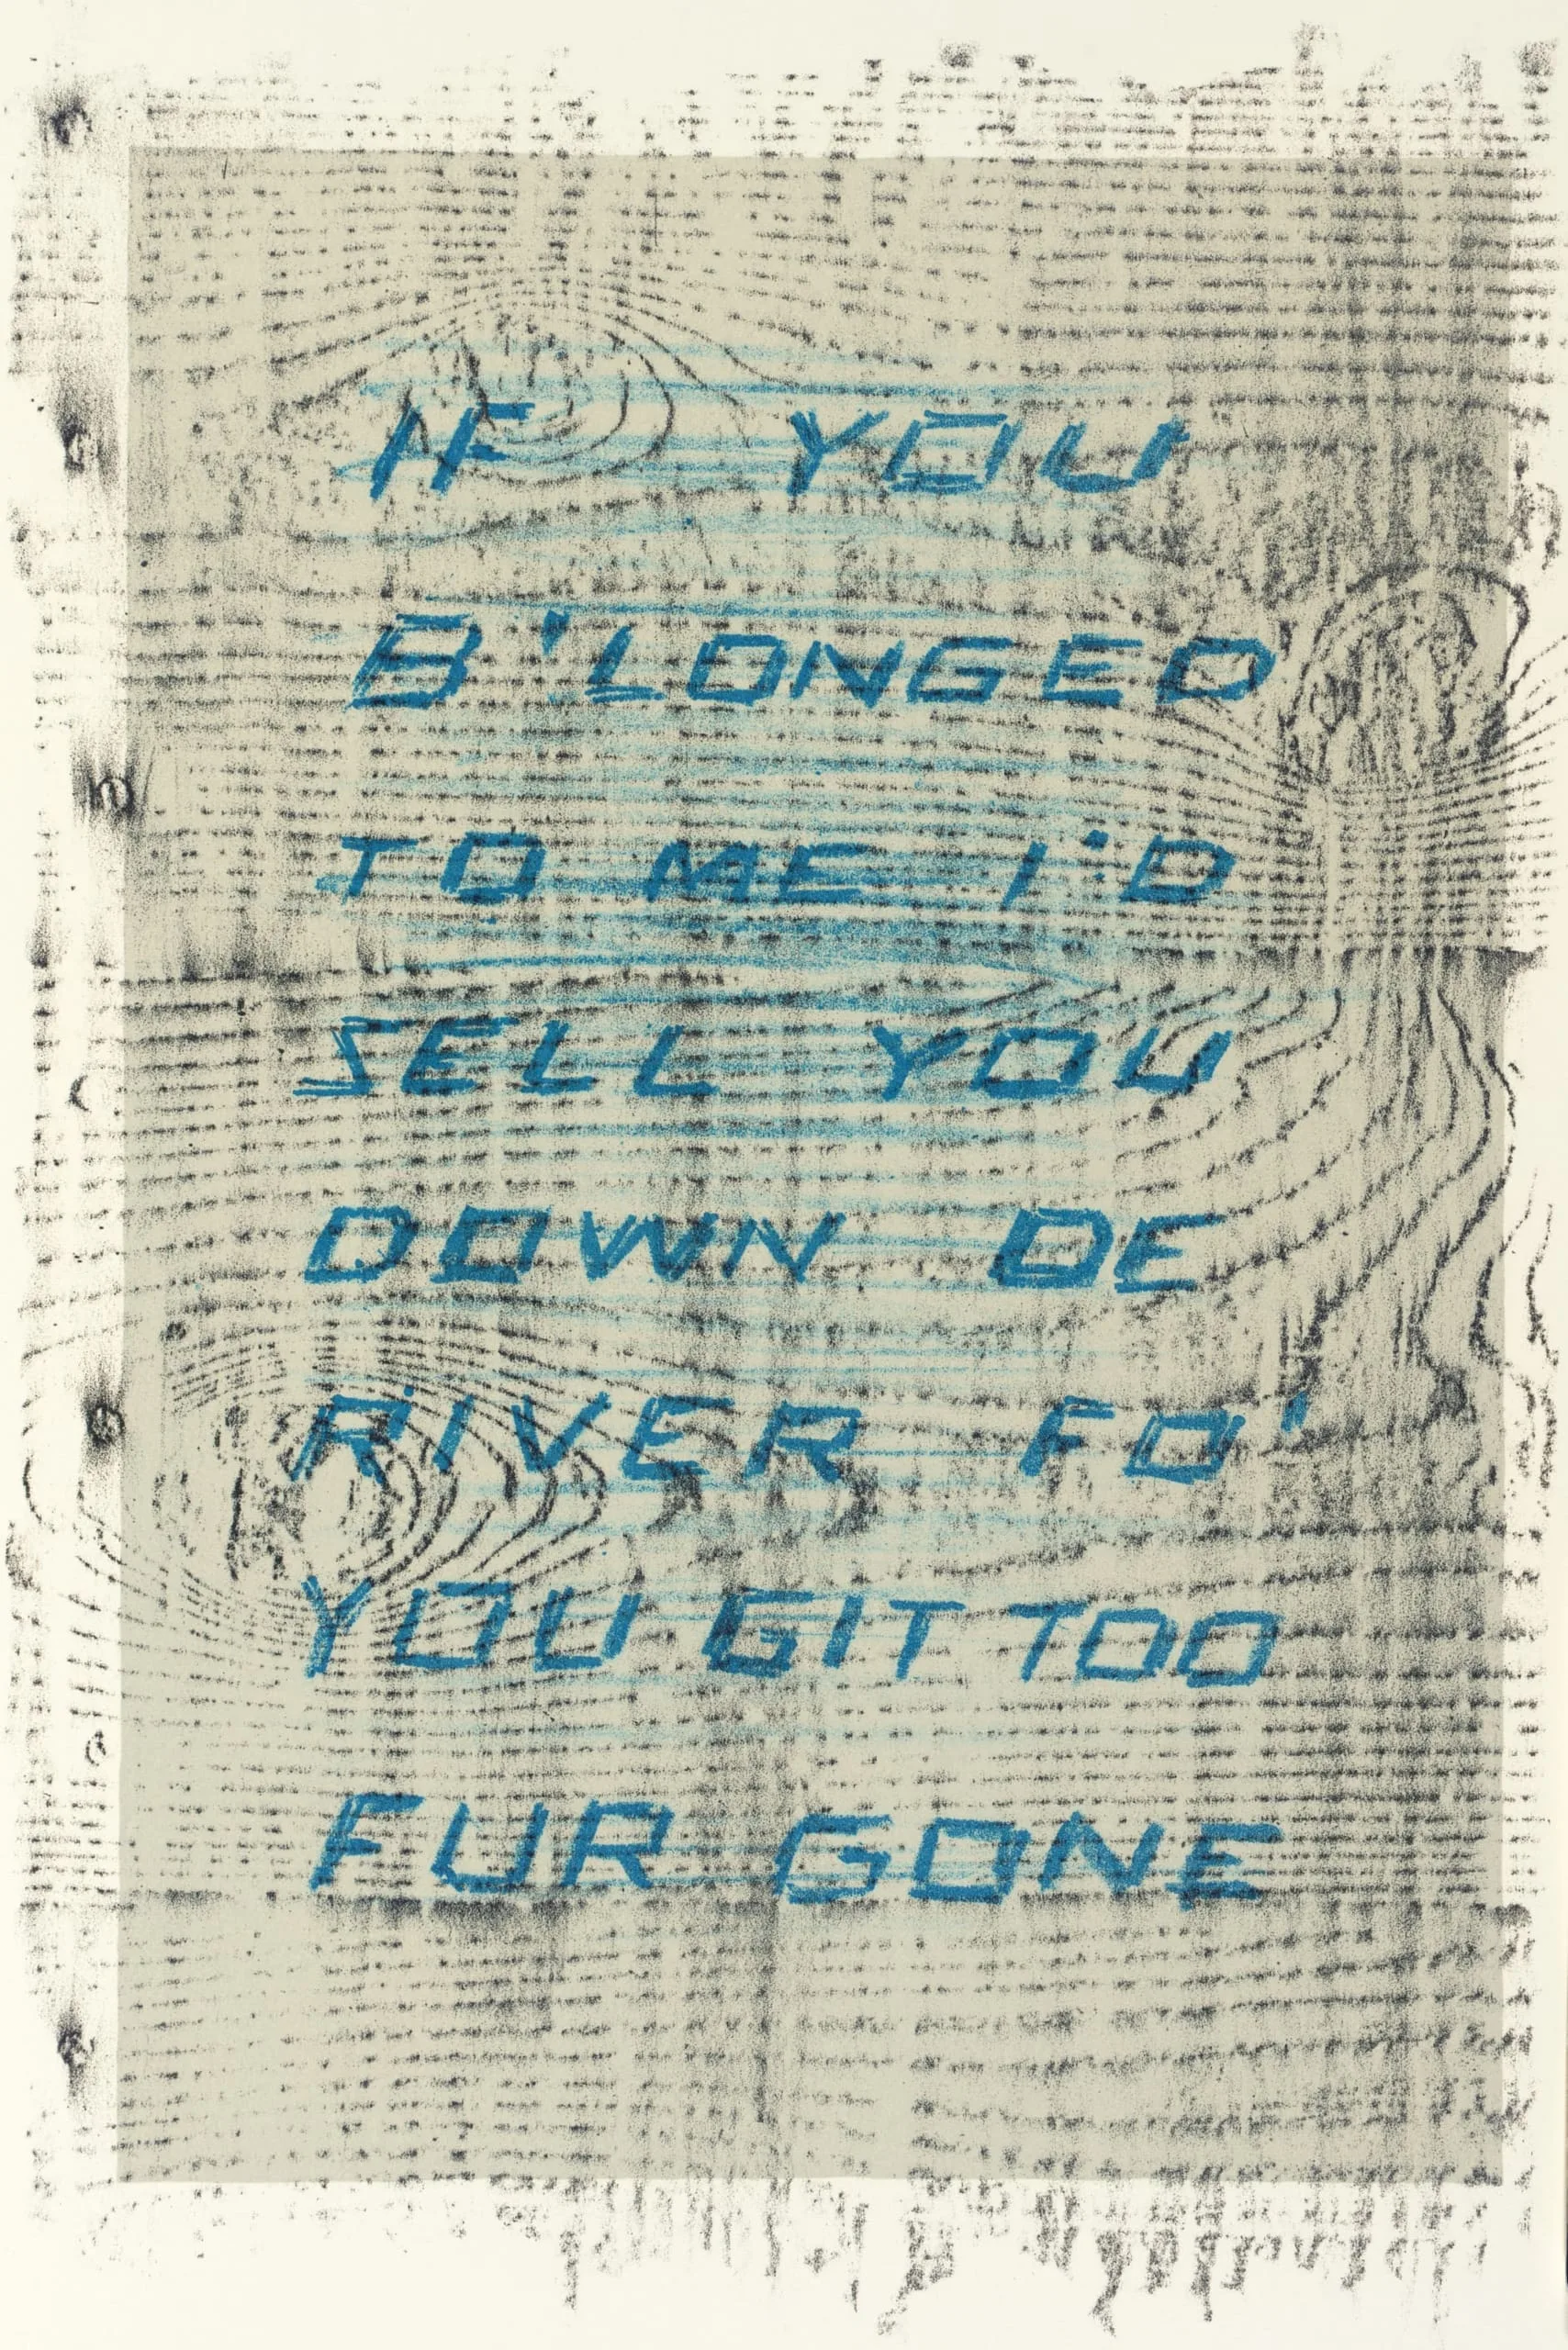 IF YOU
B'LONGED
TO ME I'D
SELL YOU
DOWN DE
RIVER FO'
YOU GIT TOO
FUR GONE